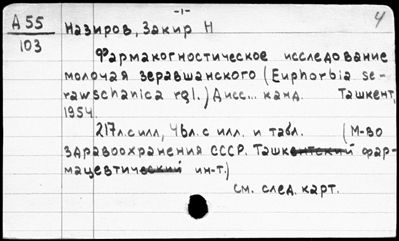 -1-
4
А55 Назиров, Закир Н
103
Фармакогностическое исследование
молочая зеравшанского (Euphorbia se-
rawschanica rgl.) Дисс... канд. Ташкент,
1954.
217л.силл, 46л. с илл. и табл. (М-во
здравоохранения СССР. Ташкентский фар-
мацевтический ин-т.)
См. след. карт.